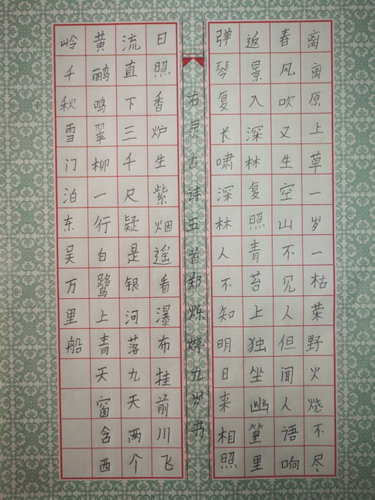 离离原上草一岁一枯荣野火烧不尽
春风吹又生空山不见人但闻人语响
返景入深林复照青苔上独坐幽篁里
弹琴复长啸深林人不知明日来相照
右录古诗五首郑烁婷九岁书
日照香炉生紫烟遥看瀑布挂前川飞
流直下三千尺疑是银河落九天两个
黄鹂鸣翠柳一行白鹭上青天窗含西
岭千秋雪门泊东吴万里船